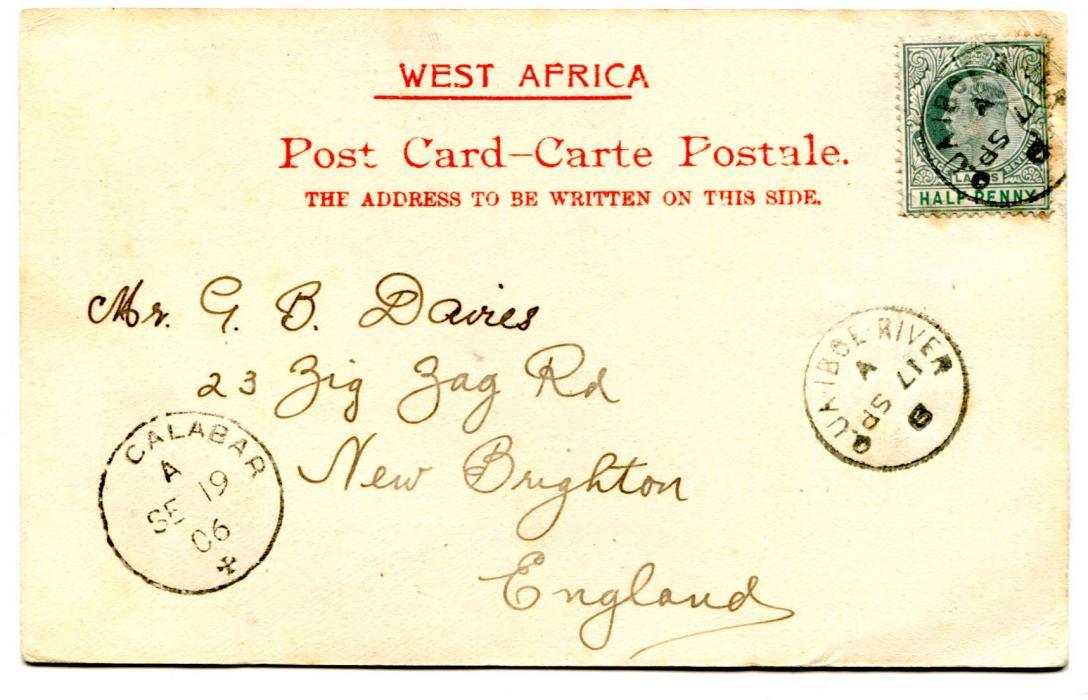 WEST AFRICA
Post Card–Carte Postale.
THE ADDRESS TO BE WRITTEN ON THIS SIDE.
LAGOS
HALF PENNY
QUA-IBOE
A
SP 17
Mr. G. B. Davies
23 Zig Zag Rd
New Brighton
England
QUA-IBOE-RIVER
A
SP 17
CALABAR
A
SE 19
06